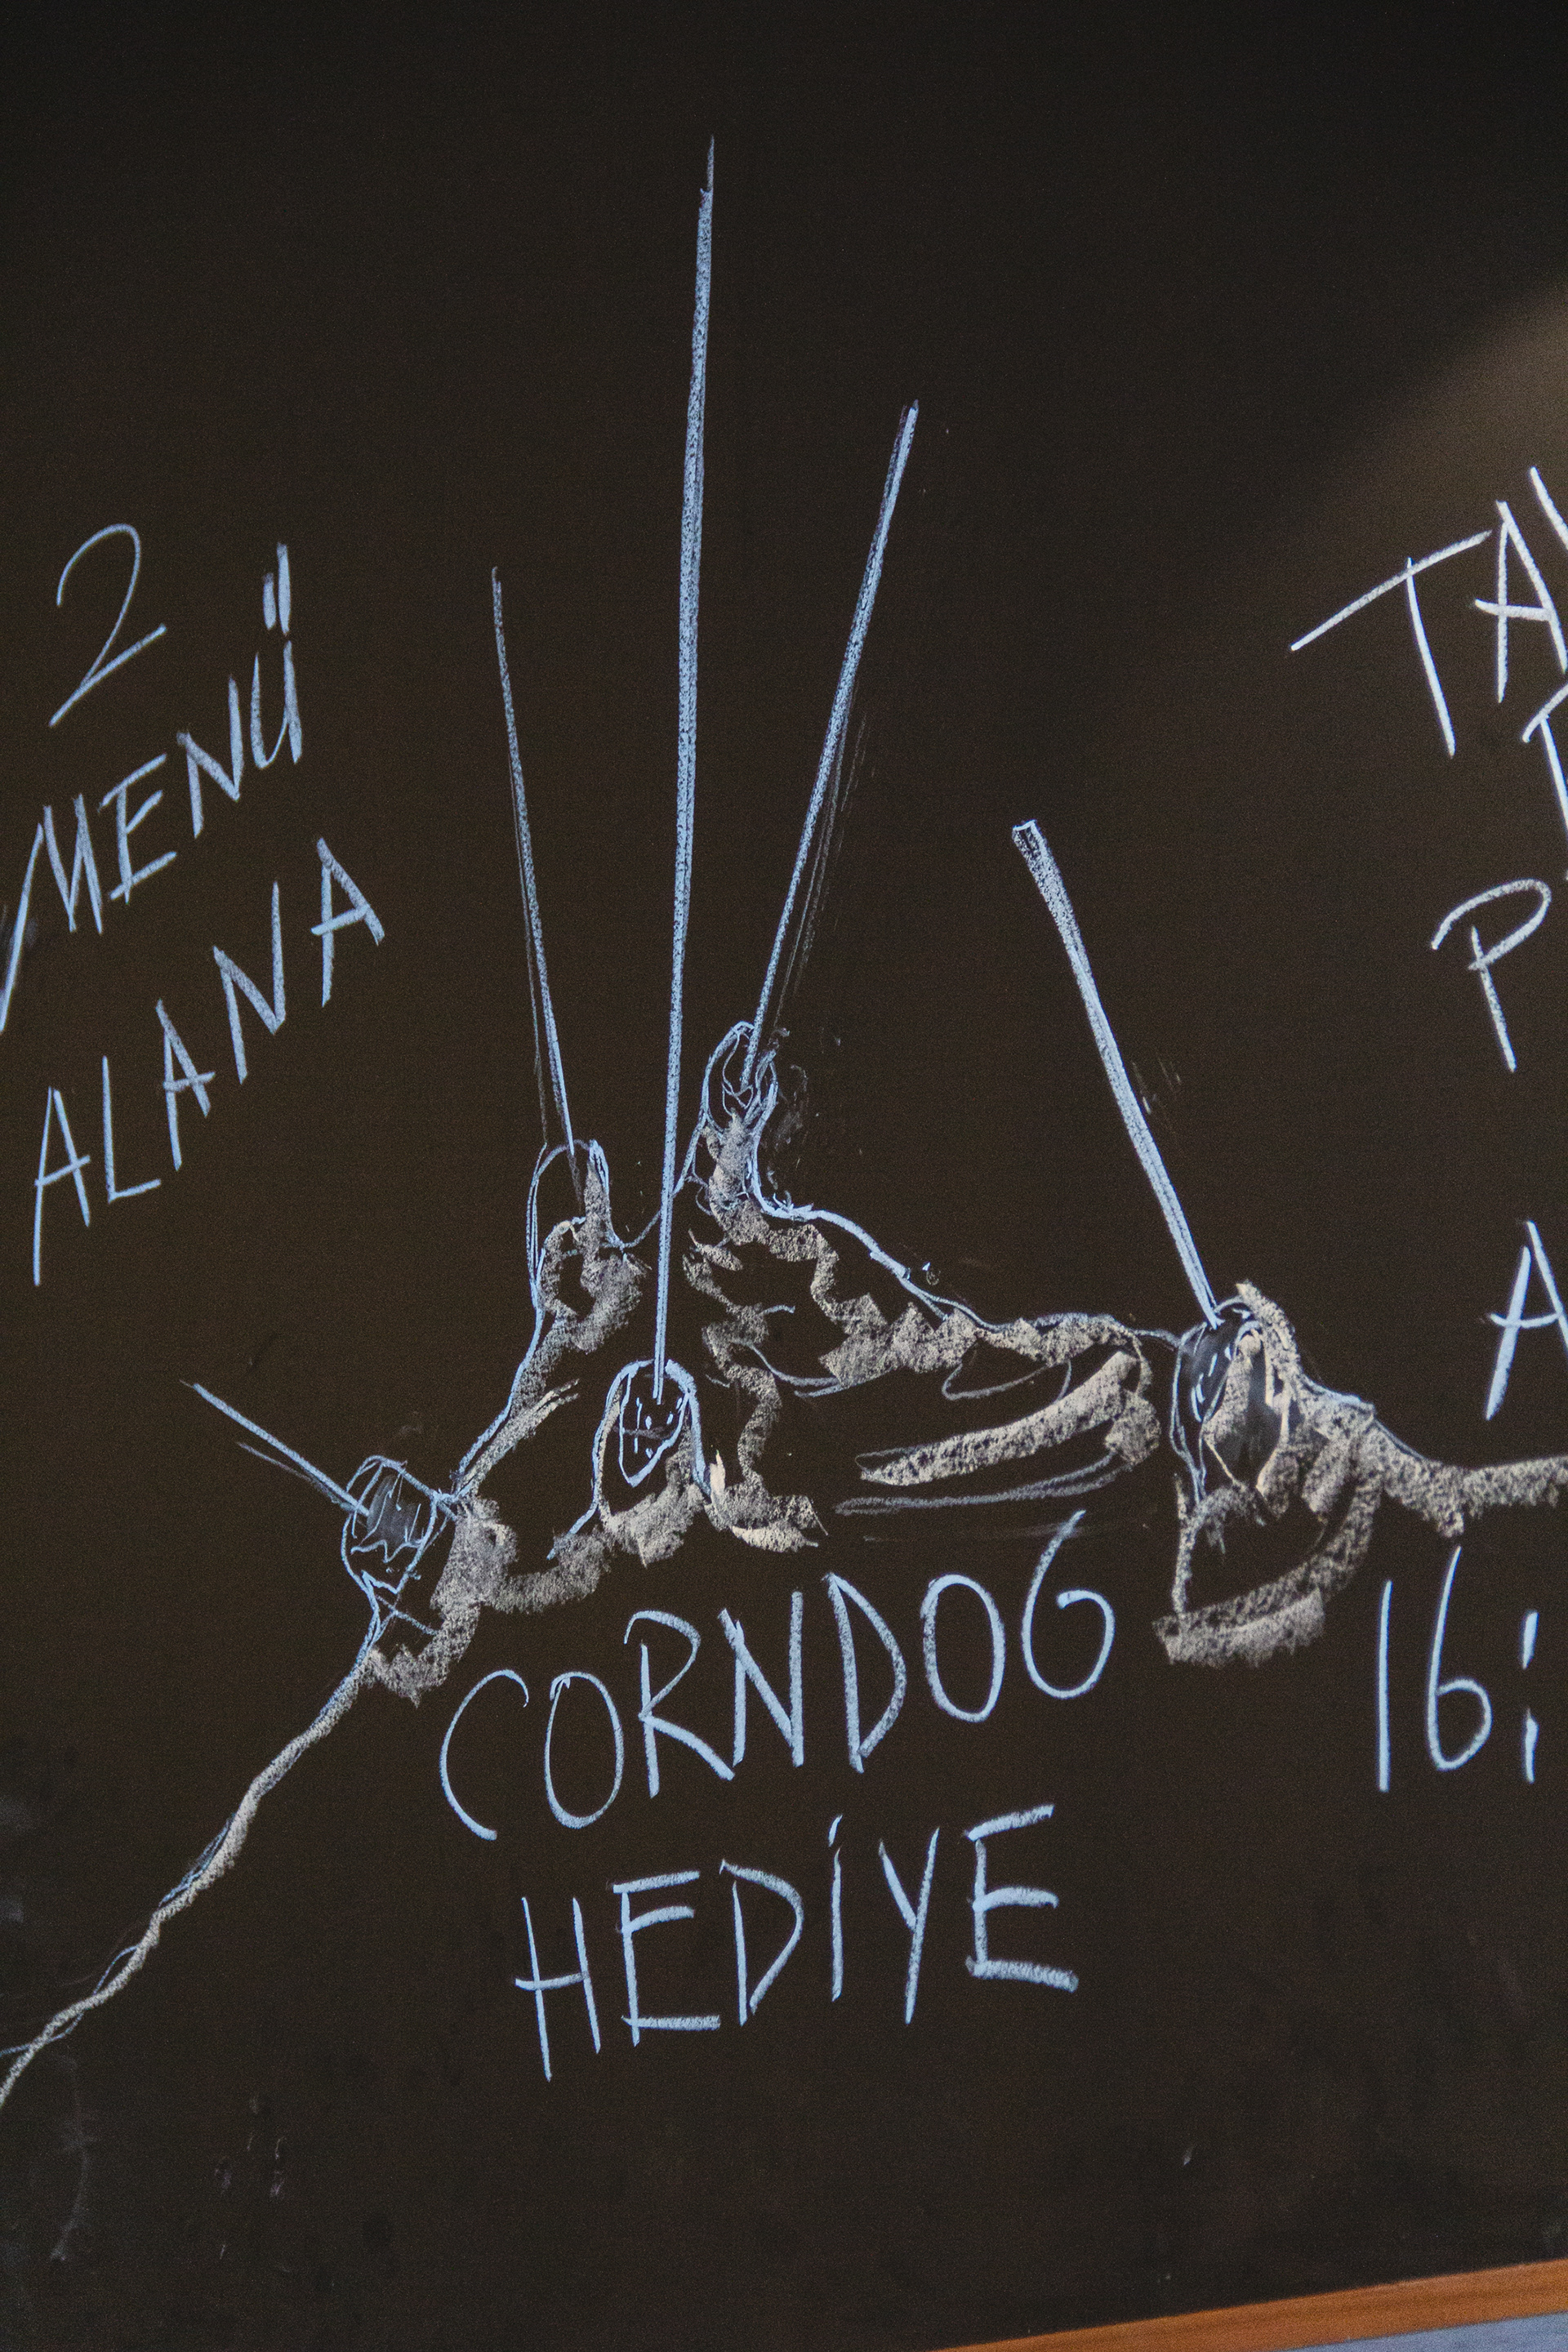 2
MENÜ
ALANA
CORNDOG
HEDİYE
16: